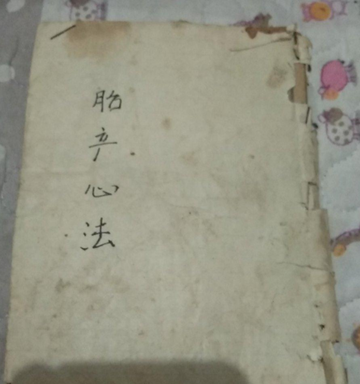 胎产心法